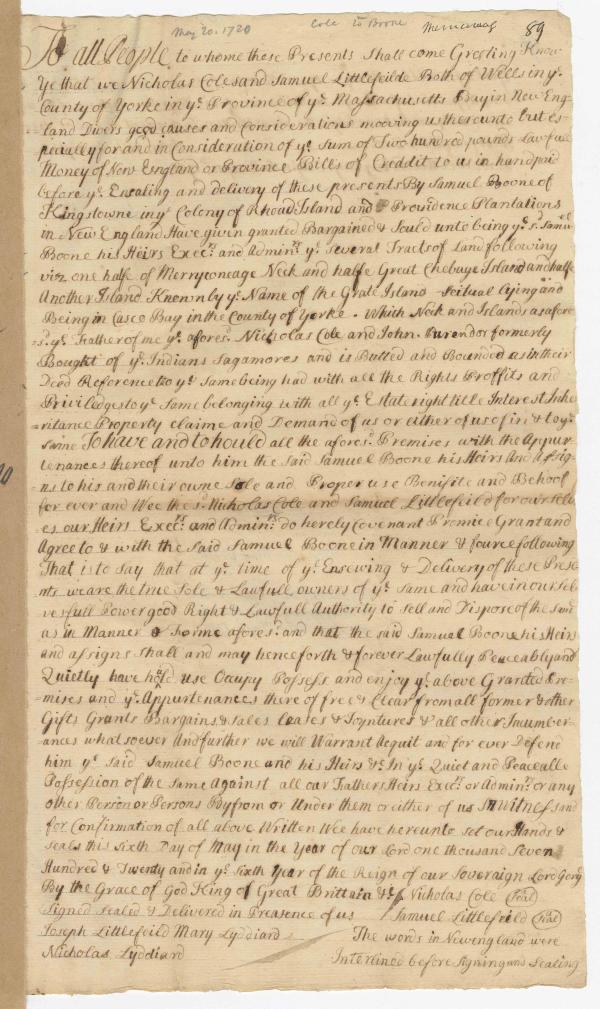 May 20. 1720 Cole to Boone 89
To all People to whome these Presents Shall come Greeting Know
Ye that we Nicholas Cole and Samuel Littlefeilde Both of Wells in yᵉ
County of Yorke in yᵉ Province of yᵉ Massachusetts Bay in New Eng-
land Divers good causes and Considerations mooving us thereunto but es-
pecially for and in Consideration of yᵉ Sum of Two hundred pounds Lawfull
Money of New England or Province Bills of Creddit to us in hand pai
before yᵉ Ensealing and delivery of these presents By Samuel Boone of
Kingstowne in yᵉ Colony of Rhoad Island and Providence Plantations
in New England Have given granted Bargained & Sould unto being yᵉ sᵈ Samuel
Boone his Heirs Execʳˢ and Adminʳˢ yᵉ Several Tracts of Land following
viz one halfe of Merryconeage Neck and halfe Great Chebuge Island and halfe
Another Island Known by yᵉ Name of the Grate Island Scituat lying and
Being in Casco Bay in the County of Yorke - Which Neck and Islands as afore
sᵈ yᵉ Father of me yᵉ aforesᵈ Nicholas Cole and John Purendor formerly
Bought of yᵉ Indians Sagamores and is Butted and Bounded as in their
Deed Reference to yᵉ Same being had with all the Rights Proffits and
Priviledges to yᵉ Same belonging with all yᵉ Estate right title Interest Inhe
ritance Property claime and Demand of us or either of us of in & to yᵉ
Same To have and to hould all the aforesᵈ Premises with the Appur-
tenances thereof unto him the said Samuel Boone his Heirs And assig
ns to his and their owne Sole and Proper use Benifite and Behoof
for ever and Wee the sᵈ Nicholas Cole and Samuel Littlefeild for our selv
es our Heirs Execʳˢ and Adminʳˢ do hereby Covenant Promice Grant and
Agree to & with the Said Samuel Boone in Manner & fource following
That is to say that at yᵉ time of yᵉ Ensewing & Delivery of these Prese
nts we are the true Sole & Lawfull owners of yᵉ Same and have in our selv-
ves full Power good Right & Lawfull Authority to Sell and Dispose of the Same
as in Manner & Forme aforesᵈ and that the said Samuel Boone his Heirs
and assigns Shall and may henceforth & forever Lawfully Peaceably and
Quietly have hold use Occupy Possess and enjoy yᵉ above Granted Pre-
mises and yᵉ Appurtenances there of free & Clear from all former & other
Gifts Grants Bargains & Sales Leases & Joyntures & all other Incumber-
ances what soever And further we will Warrant Acquit and for ever Defend
him yᵉ Said Samuel Boone and his Heirs &ᶜ In yᵉ Quiet and Peaceable
Possession of the Same Against all our Fathers Heirs Execʳˢ or Adminʳˢ or any
other Person or Persons By from or Under them or either of us In Witness and
for Confirmation of all above Written Wee have hereunto set our Hands &
seals this Sixth Day of May in the Year of our Lord one thousand Seven
Hundred & Twenty and in yᵉ Sixth Year of the Reign of our Soveraign Lord Gorg
By the Grace of God King of Great Brittain &ᶜ Nicholas Cole (Seal)
Signed Sealed & Delivered in Preasence of us Samuel Littlefeild (Seal)
Joseph Littlefeild Mary Lyddiard The words in New england were
Nicholas Lyddiard Interlined before Signing and Sealing